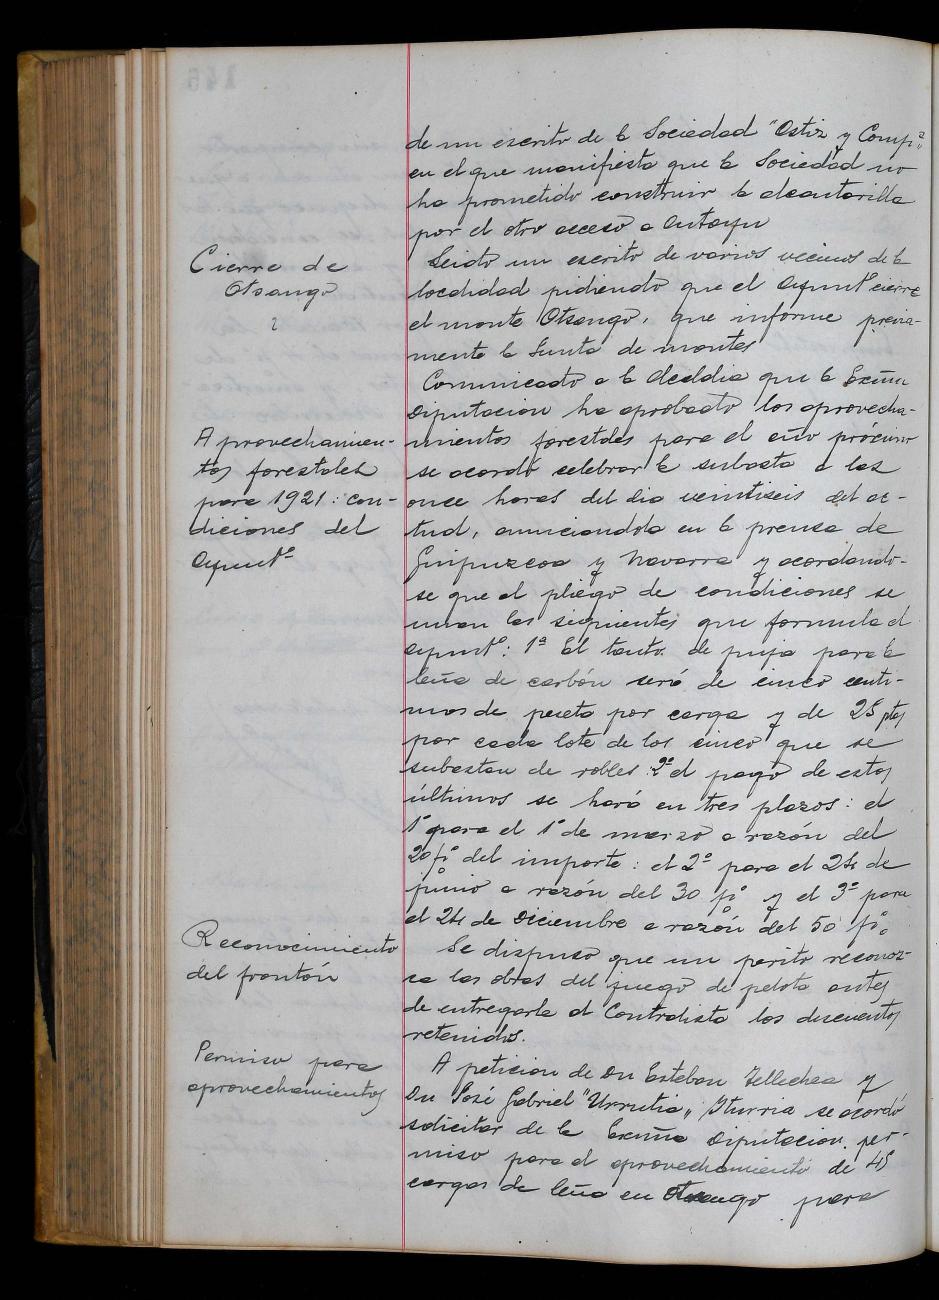 de un escrito de la Sociedad "Ostiz y Comp.ª"
en el que manifiesta que la Sociedad no
ha prometido construir la alcantarilla
por el otro acceso a
Cierre de
Otsango
Leido un escrito de varios vecinos de la
localidad pidiendo que el Ayuntº cierre
el monte Otsango, que informe previa-
mente la Junta de montes
Aprovechamien-
tos forestales
para 1921: con-
diciones del
Ayuntº
Comunicado a la Alcaldia que la Excma
Diputacion ha aprobado los aprovecha-
mientos forestales para el año próximo
se acordó celebrar la subasta a las
once horas del dia veintiseis del ac-
tual, anunciandola en la prensa de
Guipuzcoa y Navarra y acordando-
se que al pliego de condiciones se
unan las siguientes que formula el
Ayuntº: 1ª El tanto de puja para la
leña de carbón será de cinco centi-
mos de peseta por carga y de 25 ptas
por cada lote de los cinco que se
subastan de robles: 2ª el pago de estos
últimos se hará en tres plazos: el
1º para el 1º de marzo a razón del
20 pº del importe: el 2º para el 24 de
junio a razón del 30 pº y el 3º para
el 24 de Diciembre a razón del 50 pº
Reconocimiento
del frontón
Se dispuso que un perito reconoz-
ca las obras del juego de pelota antes
de entregarle al Contratista los descuentos
retenidos.
Permiso para
aprovechamientos
A peticion de Dn Esteban Tellechea y
Dn José Gabriel "Urrutia" Iturria se acordó
solicitar de la Excma Diputacion per-
miso para el aprovechamiento de 45
cargas de leña en Otsango para